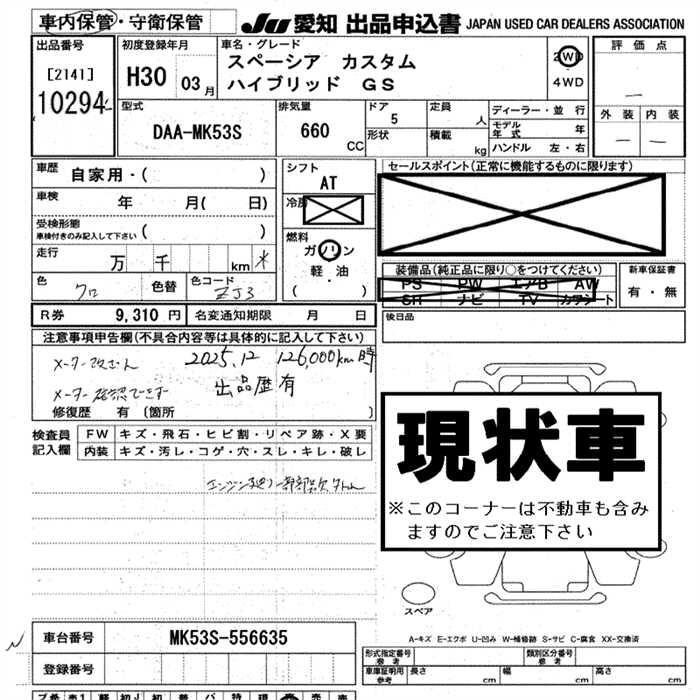 車内保管・守衛保管
JU 愛知 出品申込書 JAPAN USED CAR DEALERS ASSOCIATION
出品番号
[2141]
10294
初度登録年月
H30 03月
車名・グレード
スペーシア カスタム
ハイブリッド GS
2WD
4WD
評価点
外装 内装
型式
DAA-MK53S
排気量
660
CC
ドア
5
形状
定員
人
積載
kg
ディーラー・並行
モデル年式 年
ハンドル 左・右
車歴
自家用・( )
車検
年 月( 日)
受検形態
車検付きのみ記入して下さい ( )
走行
万 千 km
色
クロ
色替
色コード
ZJ3
シフト
AT
冷房
燃料
ガソリン
軽・油
( )
セールスポイント(正常に機能するものに限ります)
装備品(純正品に限り○をつけてください)
PS PW エアB AW
SR ナビ TV カワシート
新車保証書
有・無
R券 9,310 円
名変通知期限 月 日
後日品
注意事項申告欄(不具合内容等は具体的に記入して下さい)
メーター改ざん 2025.12 126,000km時
出品歴有
メーター確認できず
修復歴 有 (箇所 )
検査員記入欄
FW キズ・飛石・ヒビ割・リペア跡・X要
内装 キズ・汚レ・コゲ・穴・スレ・キレ・破レ
エンジン廻り一部部品欠
現状車
※このコーナーは不動車も含み
ますのでご注意下さい
スペア
A-キズ E-エクボ U-凹み W-補修跡 S-サビ C-腐食 XX-交換済
車台番号
MK53S-556635
登録番号
形式指定番号
参考
類別区分番号
参考
車庫証明用
参考
長さ cm 幅 cm 高さ cm